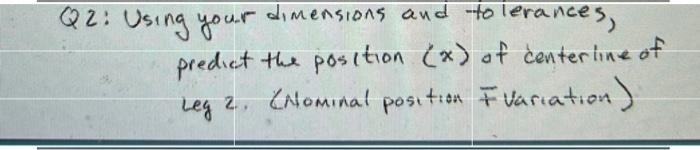 Q2: Using your dimensions and tolerances,
predict the position (x) of centerline of
Leg 2. (Nominal position ∓ variation)